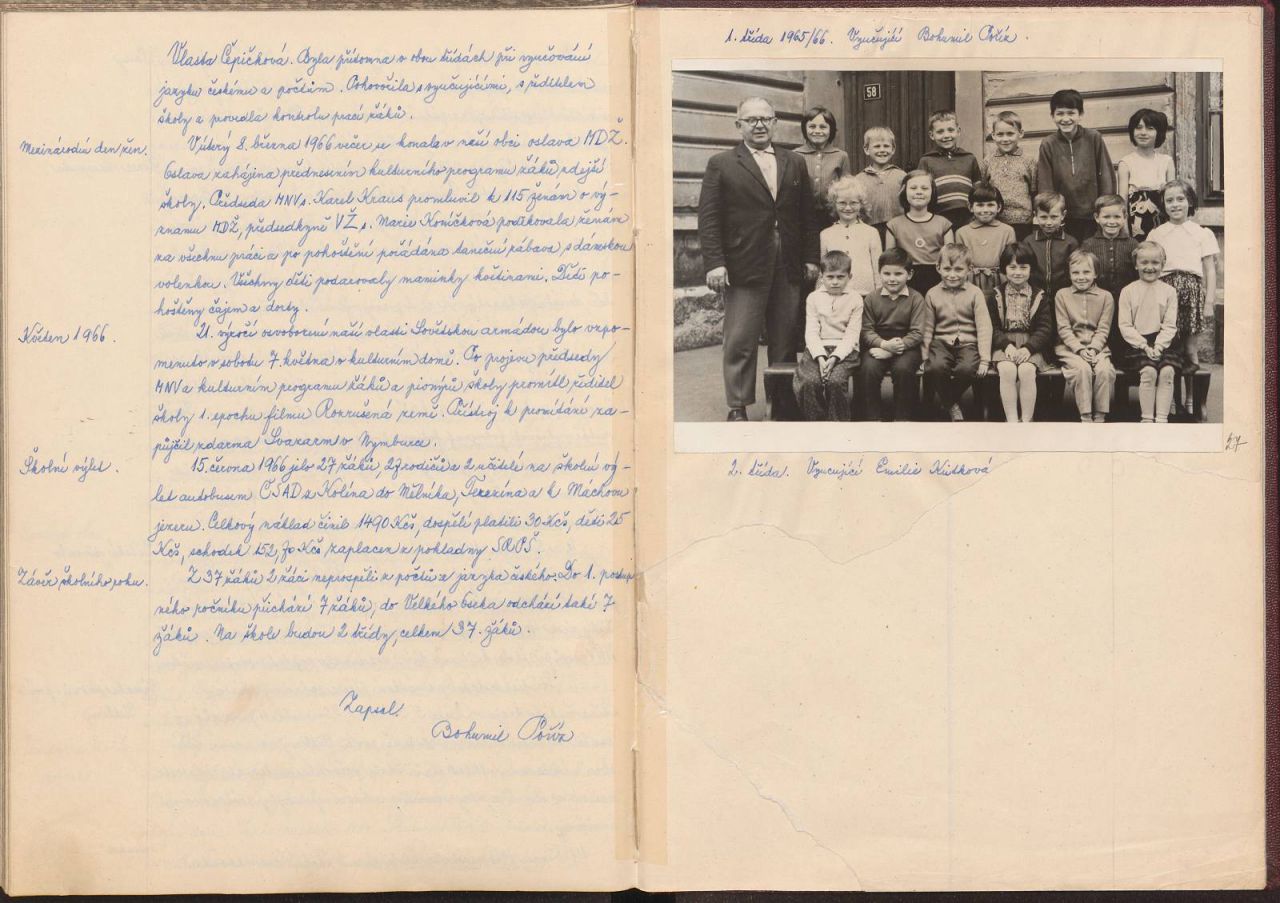 Vlasta Čepičková. Byla přítomna v obou třídách při vyučování
jazyku českému a počtům. Pohovořila s vyučujícími, s ředitelem
školy a provedla kontrolu prací žáků.
Mezinárodní den žen.
V úterý 8. března 1966 večer se konala v naší obci oslava MDŽ.
Oslava zahájena přednesením kulturního programu žáků zdejší
školy. Předseda MNV s. Karel Kraus promluvil k 115 ženám o vý-
znamu MDŽ, předsedkyně VŽ s. Marie Koníčková poděkovala ženám
za všechnu práci a po pohoštění pořádána taneční zábava s dámskou
volenkou. Všechny děti podarovaly maminky květinami. Děti po-
hoštěny čajem a dorty.
Květen 1966.
21. výročí osvobození naší vlasti Sovětskou armádou bylo vzpo-
menuto v sobotu 7. května v kulturním domě. Po projevu předsedy
MNV a kulturním programu žáků a pionýrů školy promítl ředitel
školy 1. epochu filmu Rozrušená země. Přístroj k promítání za-
půjčil zdarma Svazarm v Nymburce.
Školní výlet.
15. června 1966 jelo 27 žáků, 27 rodičů a 2 učitelé na školní vý-
let autobusem ČSAD z Kolína do Mělníka, Terezína a k Máchovu
jezeru. Celkový náklad činil 1490 Kčs, dospělí platili 30 Kčs, děti 25
Kčs, schodek 152,70 Kčs zaplacen z pokladny SRPŠ.
Závěr školního roku.
Z 37 žáků 2 žáci neprospěli z počtů a jazyka českého. Do 1. postup-
ného ročníku přichází 7 žáků, do Velkého Oseka odchází také 7
žáků. Na škole budou 2 třídy, celkem 37 žáků.
Zapsal.
Bohumil Poříz
1. třída 1965/66. Vyučující Bohumil Poříz.
58
27
2. třída. Vyučující Emilie